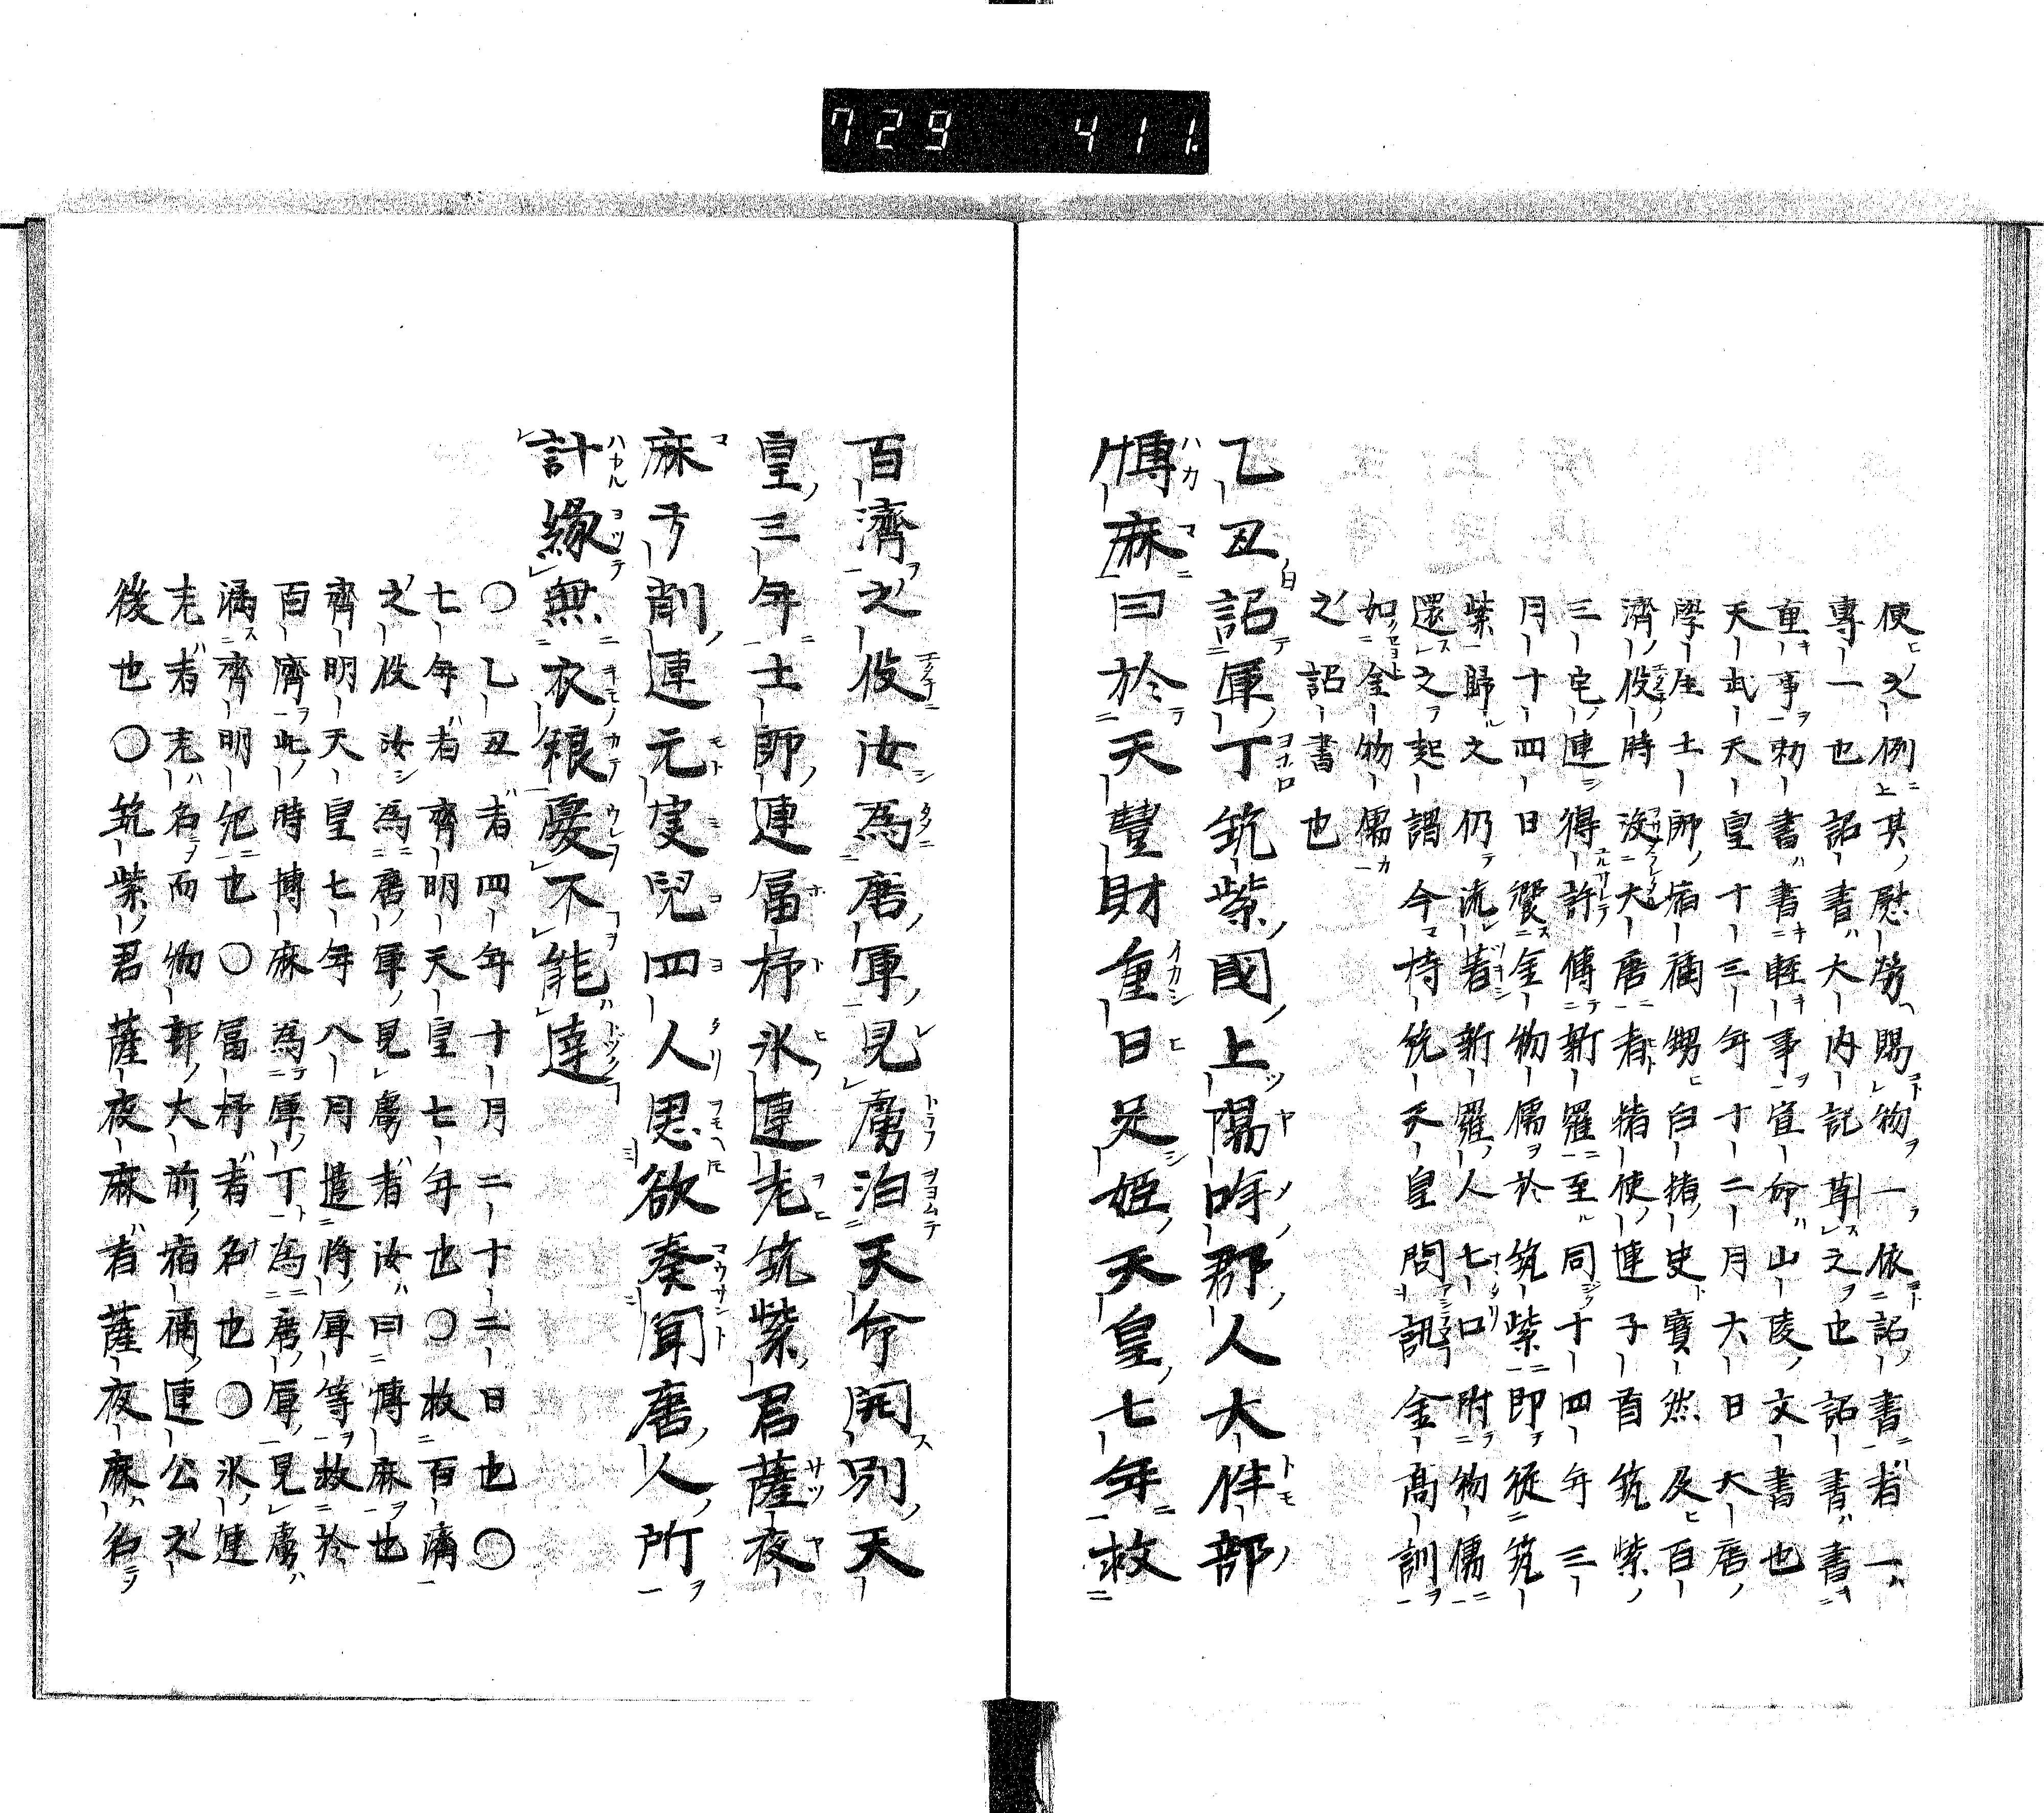 729 411
使之例其慰勞賜物一依詔書者一
專一也詔書大内記草之也詔書書
重事勅書書輕事宣命山陵文書也
天武天皇十三年十二月大日大唐
學生土師宿祢甥白猪史寶然及百
濟役時没大唐者猪使連子首筑紫
三宅連得許傳新羅至同十四年三
月十四日饗金物儒於筑紫即從筑
紫歸之仍流着新羅人七口附物儒
還之起謂今持統天皇問訊金高訓
如金物儒
之詔書也
乙丑詔軍丁筑紫國上陽咩郡人大伴部
博麻曰於天豐財重日足姫天皇七年救
百濟之役汝為唐軍見虜洎天命開別天
皇三年土師連富杼氷連老筑紫君薩夜
麻弓削連元寔兒四人思欲奏聞唐人所
計緣無衣粮憂不能達
〇乙丑者四年十月二十二日也〇
七年者齊明天皇七年也〇救百濟
之役汝為唐軍見虜者汝曰博麻也
齊明天皇七年八月遣將軍等救於
百濟此時博麻為軍丁為唐軍見虜
濔齊明紀也〇富杼者名也〇氷連
老者老名而物部大前宿祢連公之
後也〇筑紫君薩夜麻者薩夜麻名